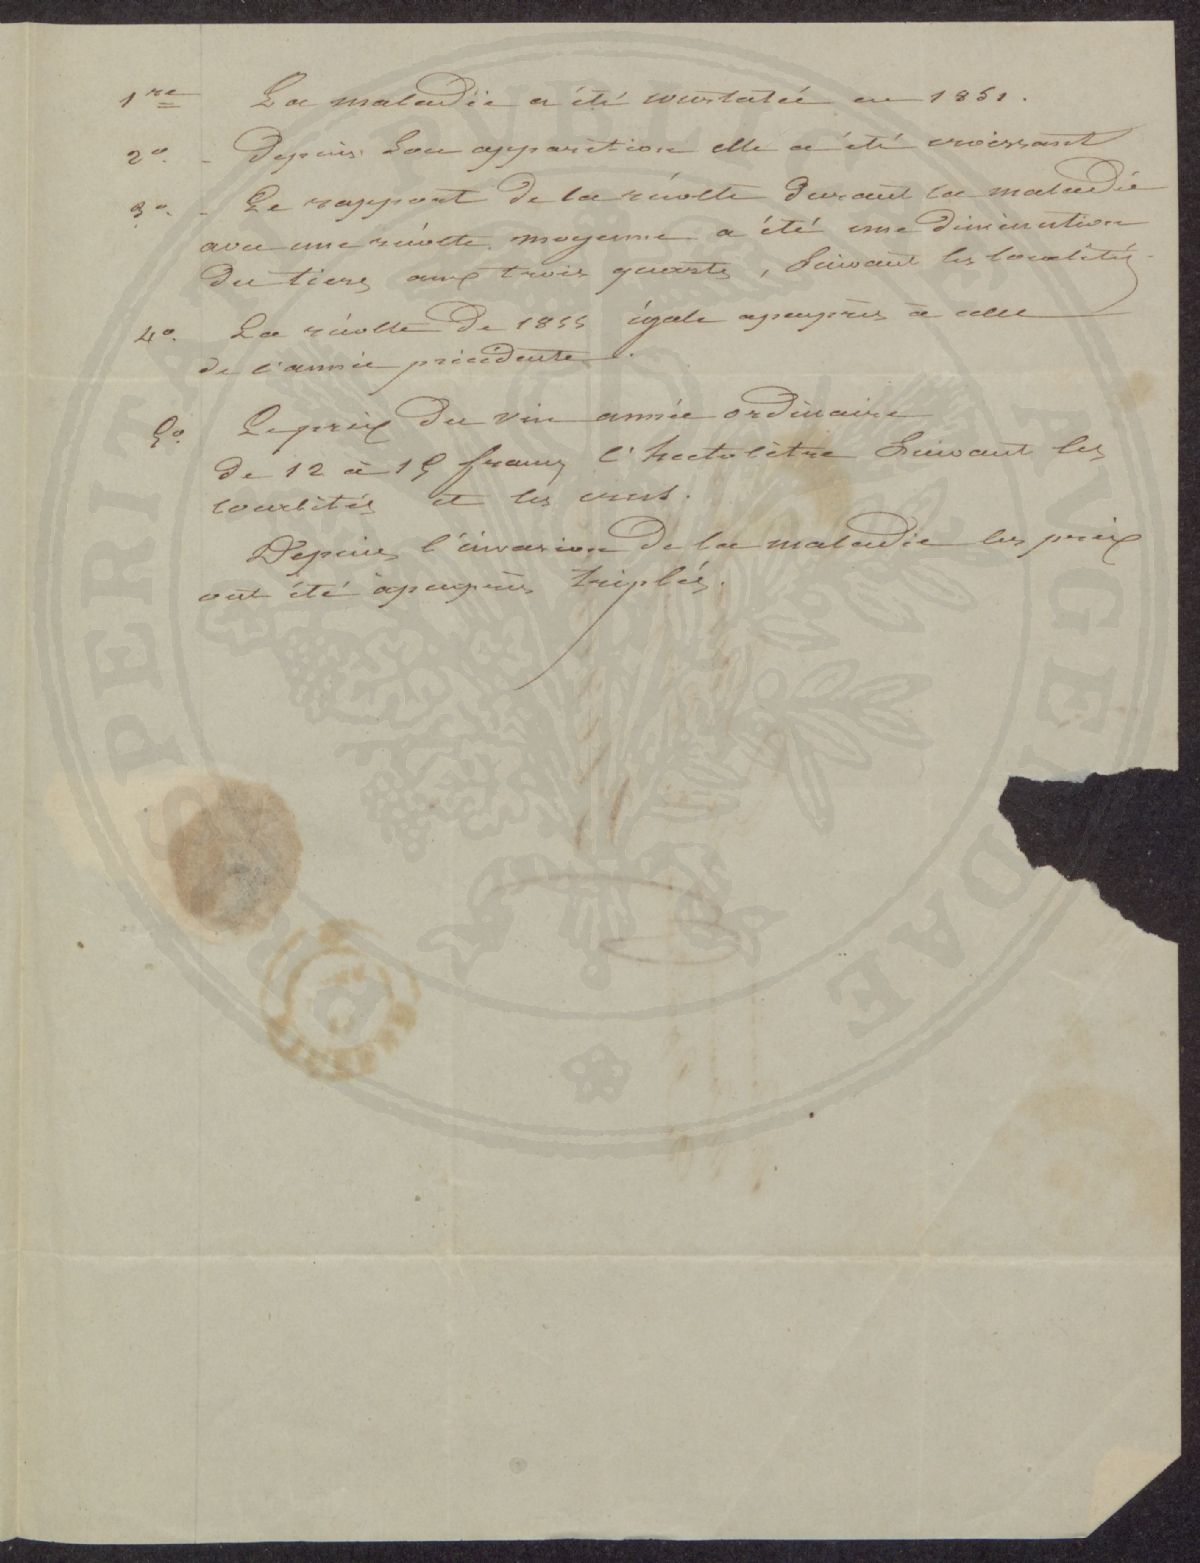 1re La maladie a été constatée en 1851.
2o. - Depuis son apparition elle a été croissant
3o. - Le rapport de la récolte durant la maladie
avec une récolte moyenne a été une diminution
du tiers aux trois quarts, suivant les localités.
4o. La récolte de 1855 égale apeuprès à celle
de l'année précédente.
5o. Le prix du vin année ordinaire
de 12 à 15 francs l'hectolitre suivant les
localités et les crus.
Depuis l'invasion de la maladie les prix
ont été apeuprès triplés.
PROSPERITATI PUBLICAE AUGENDAE